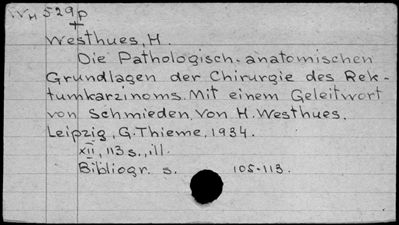 WH 529p
Westhues, H.
Die Pathologisch-anatomischen
Grundlagen der Chirurgie des Rek-
tumkarzinoms. Mit einem Geleitwort
von Schmieden, von H. Westhues.
Leipzig, G. Thieme, 1934.
XII, 113 s., ill.
Bibliogr. s. 105-113.